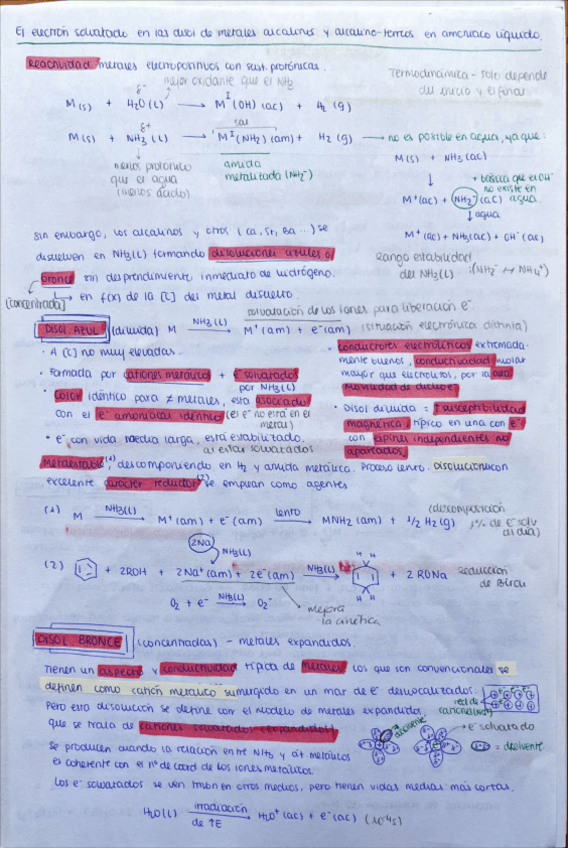 El electrón solvatado en las disol de metales alcalinos y alcalino-terreos en amoniaco líquido.
Reactividad metales electropositivos con sust. protónicas.
Termodinámica - solo depende
del inicio y el final
δ- mejor oxidante que el NH3
M(s) + H2O(l) → M^I(OH)(ac) + H2(g)
δ+ sal
M(s) + NH3(l) → M^I(NH2)(am) + H2(g) → no es posible en agua, ya que:
menos protónico
que el agua
(menos ácido)
amida
metalitada (NH2-)
M(s) + NH3(ac)
↓ + básica que el OH-
no existe en
M+(ac) + NH2-(ac) agua.
↓ agua
M+(ac) + NH3(ac) + OH-(ac)
Rango estabilidad
del NH3(l) : (NH2- ↔ NH4+)
Sin embargo, los alcalinos y otros (Ca, Sr, Ba...) se
disuelven en NH3(l) formando disoluciones azules o
bronce sin desprendimiento inmediato de hidrógeno.
(concentrada) → en f(x) de la [C] del metal disuelto.
solvatación de los iones para liberación e-
DISOL AZUL (diluida) M —NH3(l)→ M+(am) + e-(am) (situación electrónica distinta)
• A [C] no muy elevadas.
• Formada por cationes metálicos + e- solvatados
por NH3(l)
• Color idéntico para ≠ metales, está asociado
con el e- amoniacal idéntico (el e- no está en el
metal)
• e- con vida media larga, está estabilizado.
al estar solvatados
• conductores electrolíticos extremada-
mente buenos, conductividad molar
mayor que electrolitos, por la alta
movilidad de dicho e-
• Disol diluida = ↑ susceptibilidad
magnética, típico en una con e-
con espines independientes no
apareados.
Metaestable(1), descomponiendo en H2 y amida metálica. Proceso lento. Disolución con
excelente carácter reductor(2) se emplean como agentes
(1) M —NH3(l)→ M+(am) + e-(am) —lento→ MNH2(am) + 1/2 H2(g) (descomposición
1% de e- solv
al día)
2Na
↓ NH3(l)
(2) + 2ROH + 2Na+(am) + 2e-(am) —NH3(l)→ H H H H + 2RONa Reducción
de Birch
O2 + e- —NH3(l)→ O2- mejora
la cinética
DISOL BRONCE (concentradas) - metales expandidos.
Tienen un aspecto y conductividad típica de metales. Los que son convencionales se
definen como catión metálico sumergido en un mar de e- deslocalizados.
red de
cationes
Pero esta disolución se define con el modelo de metales expandida,
que se trata de cationes solvatados expandidos
disolvente
e- solvatado
= disolvente
Se producen cuando la relación entre NH3 y át metálicos
es coherente con el nº de coord de los iones metálicos.
Los e- solvatados se ven tmbn en otros medios, pero tienen vidas medias más cortas.
H2O(l) —irradiación de ↑E→ H2O+(ac) + e-(ac)